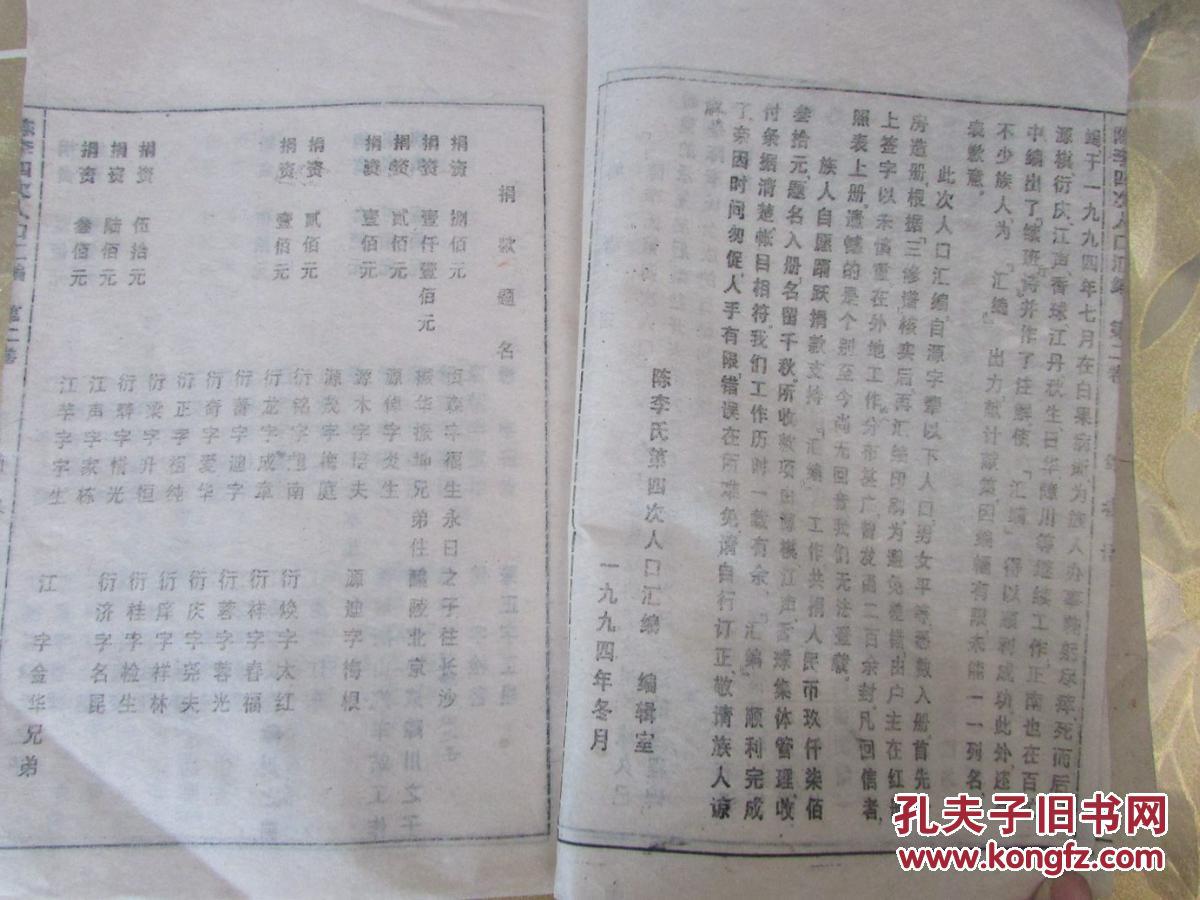 陈李四次人口汇编 第二卷
编于一九九四年七月在白果
源棋、衍庆、江声、香球、江丹、秋生、日华、障川等继续工作,正南也在百
中编出了"续班诗"并作了注解,使"汇编"得以顺利成功,此外,还
不少族人为"汇编"出力,献计献策,因编幅有限,未能一一列名,
表歉意。
此次人口汇编,自源字辈以下人口,男女平等,悉数入册,首先
房造册,根据"三修谱"核实后,再汇综印刷,为避免差错,由户主在红
上签字以示慎重,在外地工作,分布甚广,曾发函二百余封,凡回信者,
照表上册,遗憾的是个别至今尚无回音,我们无法登载。
族人自愿踊跃捐款支持"汇编"工作,共捐人民币玖仟柒佰
叁拾元,题名入册,名留千秋。所收款项由源棋、江声、香球集体管理,收
付条据清楚,帐目相符。我们工作历时一载有余,"汇编"顺利完成
了,奈因时间匆促,人手有限,错误在所难免,请自行订正,敬请族人谅
陈李氏第四次人口汇编 编辑室
一九九四年冬月
捐款题名
捐资 捌佰元 字福生永日之子往长沙
捐资 壹仟壹佰元 振华振坤兄弟住醴陵北京
捐资 贰佰元 源倬字炎生
捐资 壹佰元 源木字培夫
源茂字梅庭 源迪字梅根
捐资 贰佰元 衍铭字道南 衍焕字太红
捐资 壹佰元 衍龙字成章 衍祥字春福
衍蕃字迪字 衍蓉字蓉光
衍奇字爱华 衍庆字尧夫
衍正字祖纯 衍库字祥林
捐资 伍拾元 衍梁字升恒 衍桂字检生
捐资 陆佰元 衍群字惜光 衍济字名昆
捐资 叁佰元 江声字家栋
江苹字字生 江 字金华兄弟
陈李四次人口汇编 第二卷
孔夫子旧书网
www.kongfz.com